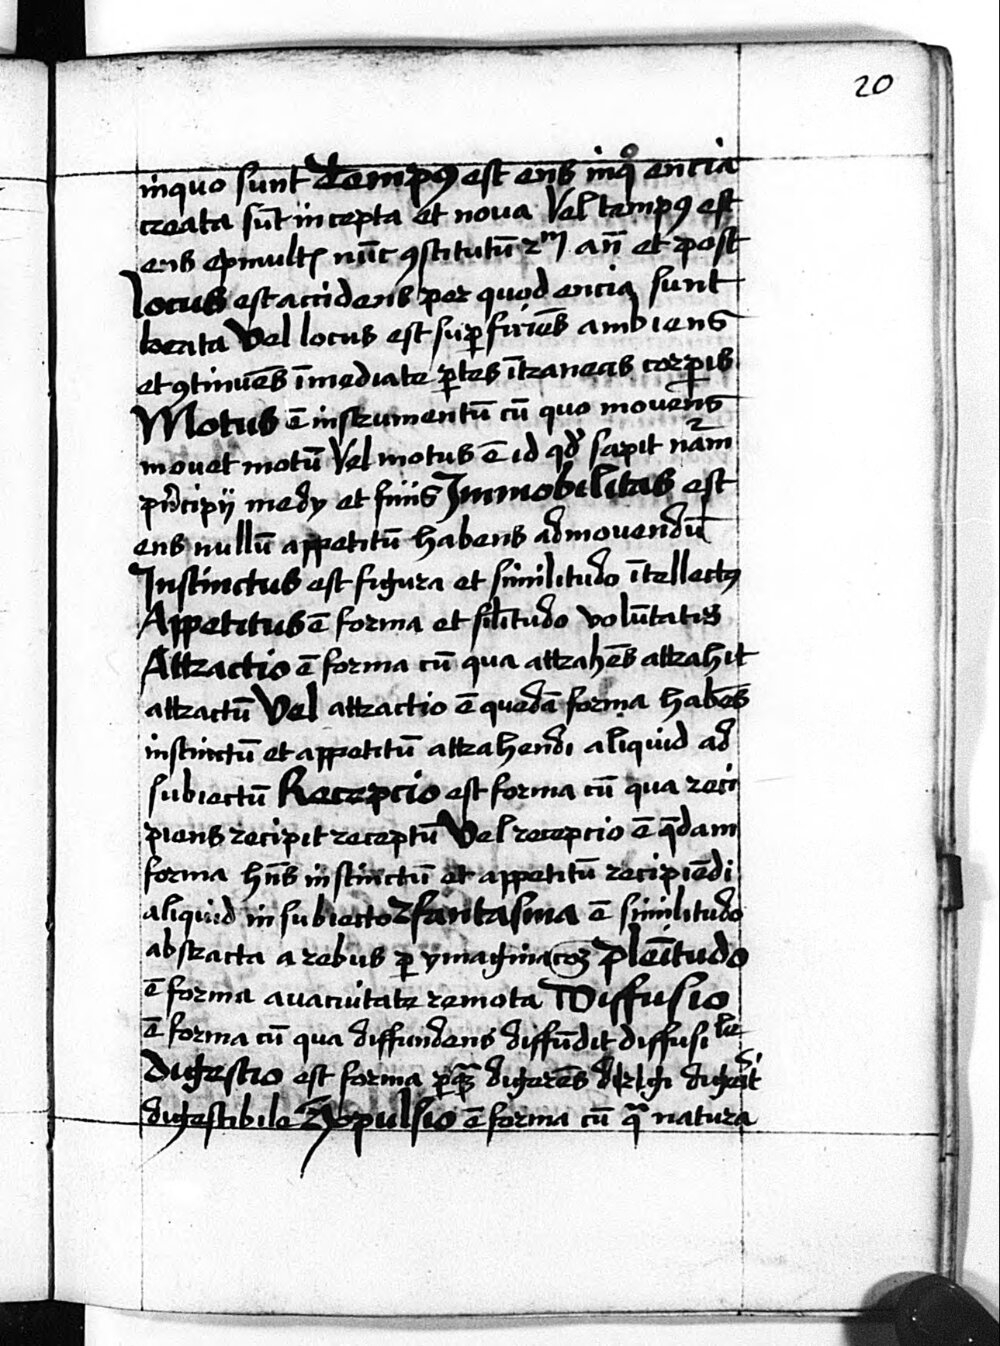 20
inquo sunt Tempꝰ est ens inqͦ encia
creata sūt incepta et noua Vel tempꝰ est
ens ex mult nūc ꝯstitutū ann̄ et post
locus est accidens per quod encia sunt
locata Vel locus est suꝑficiēs ambiens
et ꝯtinuēs īmediate ꝑtes ītraneas corꝑis
Motus ē instrumentū cū quo mouens
mouet motū Vel motus ē id qd̄ sapit nām
pͥncipij medij et finis Immobilitas est
ens nullū appetitū habens admouendū
Instinctus est figura et similitudo ītellectꝰ
Appetitus ē forma et sīlitudo volūtatis
Attractio ē forma cū qua attrahēs attrahit
attractū Vel attractio ē quedā forma habēs
instinctū et appetitū attrahendi aliquid ad
subiectū Recepcio est forma cū qua reci
piens recipit receptū Vel recepcio ē q̄dam
forma hn̄s instinctū et appetitū recipiēdi
aliquid in subiecto fantasma ē similitudo
abstracta a rebus ꝑ ymaginacoꝫ plēitudo
ē forma auacuitate remota Diffusio
ē forma cū qua diffundens diffūdit diffusile
Digestio est forma digerēs digerit
digestibile Expulsio ē forma cū qͣ natura